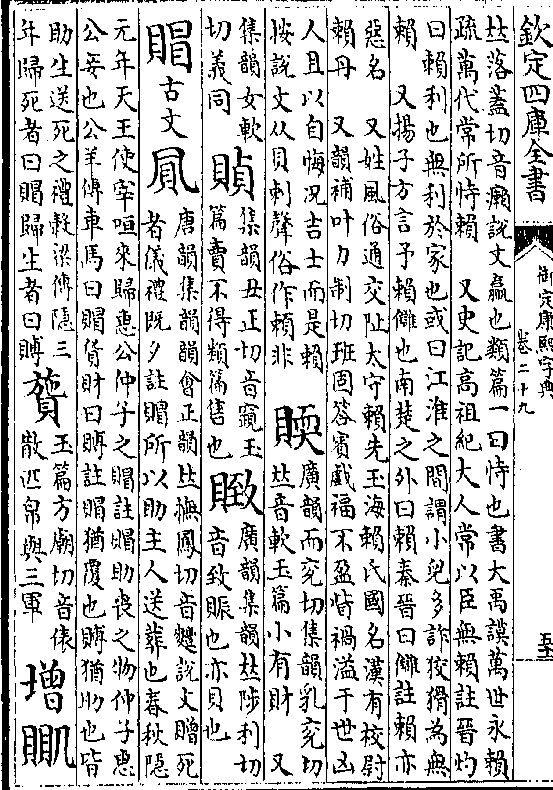 欽定四庫全書
御定康熙字典
卷二十九
𠀤落蓋切音癩說文贏也類篇一曰恃也書大禹謨萬世永賴
疏萬代常所恃賴　又史記高祖紀大人常以臣無賴註晉灼
曰賴利也無利於家也或曰江淮之間謂小兒多詐狡猾為無
賴　又揚子方言予賴讎也南楚之外曰賴秦晉曰讎註賴亦
惡名　又姓風俗通交阯太守賴先玉海賴氏國名漢有校尉
賴丹　又韻補叶力制切班固答賓戲福不盈眥禍溢于世凶
人且以自悔况吉士而是賴
按說文从貝剌聲俗作頼非
䞂廣韻而兖切集韻乳兖切
𠀤音軟玉篇小有財　又
集韻女軟
切義同
䝼集韻丑正切音竀玉
篇賣不得類篇售也
䞃廣韻集韻𠀤陟利切
音致賑也亦貝也
賵
古文𧵎
唐韻集韻韻會正韻𠀤撫鳳切音䙜說文贈死
者儀禮既夕註賵所以助主人送葬也春秋隱
元年天王使宰咺來歸惠公仲子之賵註賵助喪之物仲子惠
公妾也公羊傳車馬曰賵貨財曰賻註賵猶覆也賻猶助也皆
助生送死之禮穀梁傳隱三
年歸死者曰賵歸生者曰賻
玉篇方廟切音俵
散匹帛與三軍
增